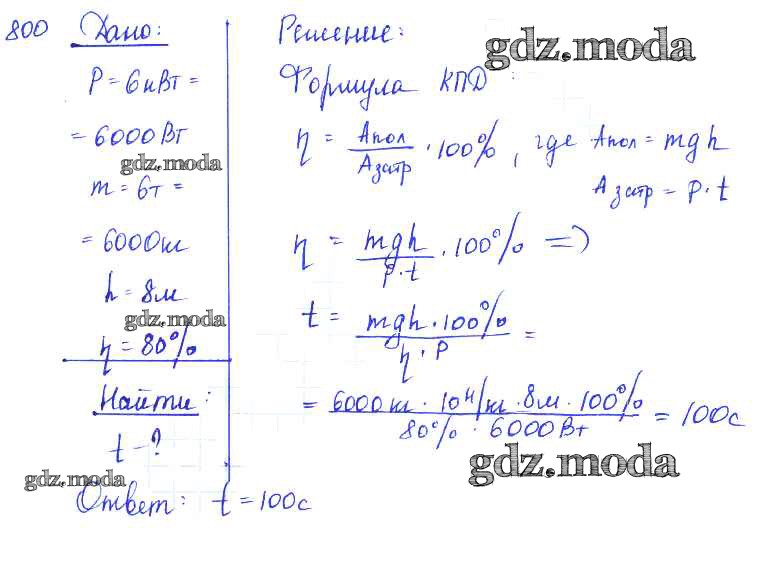 800 Дано:
P = 6кВт =
= 6000Вт
gdz.moda
m = 6т =
= 6000кг
h = 8м
gdz.moda
η = 80%
Найти:
t - ?
gdz.moda
Решение:
gdz.moda
Формула КПД:
η = Aпол / Aзатр · 100%, где Aпол = mgh
Aзатр = P·t
η = mgh / P·t · 100% =>
t = mgh · 100% / η · P =
= 6000кг · 10Н/кг · 8м · 100% / 80% · 6000Вт = 100с
gdz.moda
Ответ: t = 100с